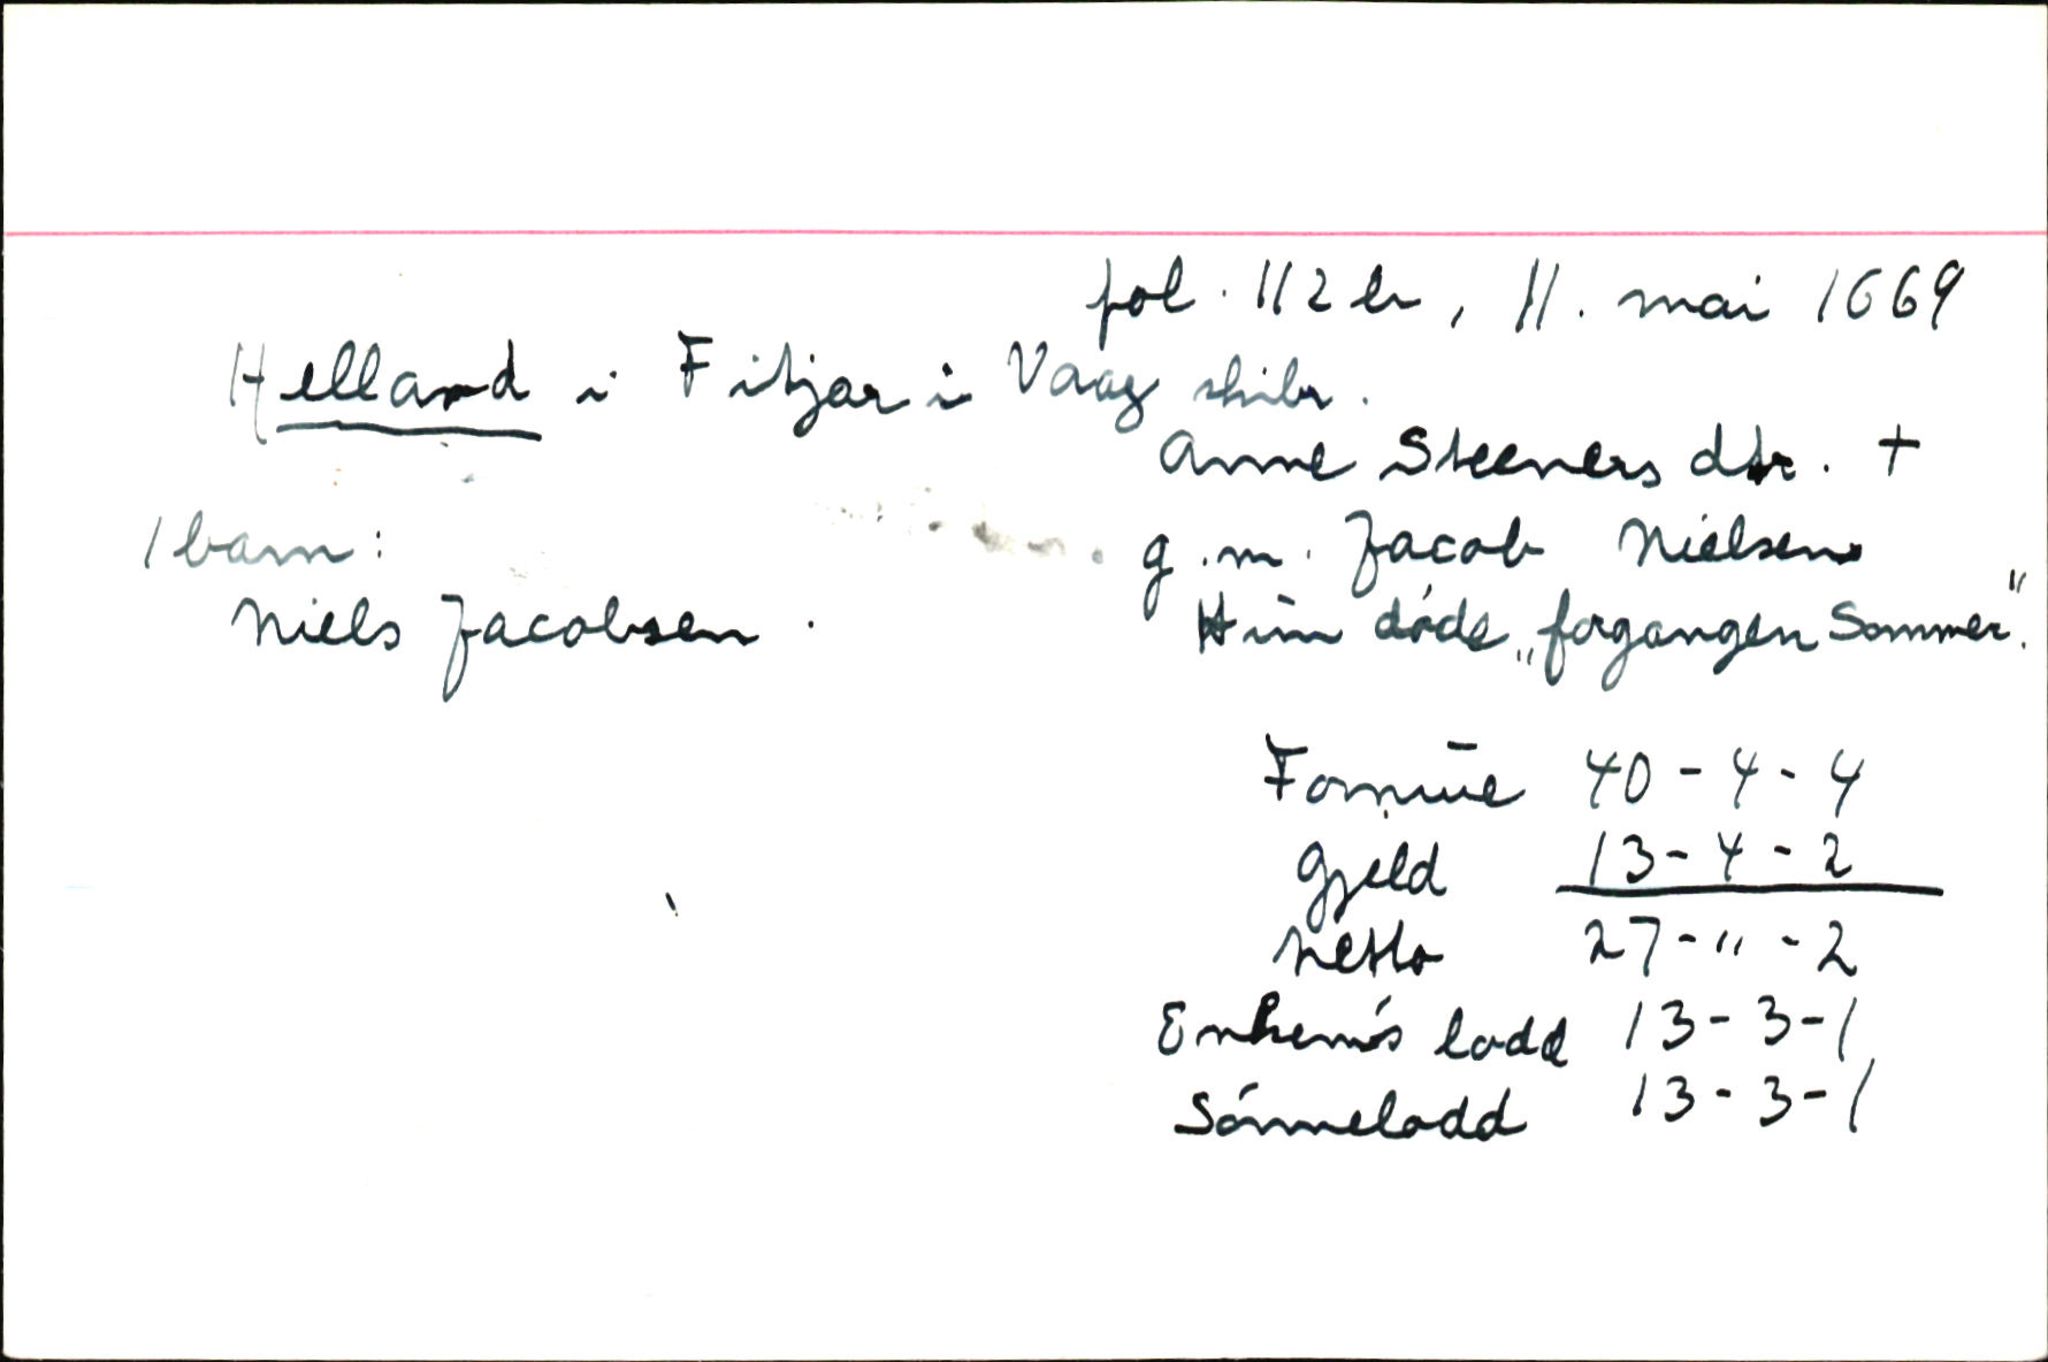 fol. 112 b, 11. mai 1669
Helland i Fitjar i Vaag skibr.
Anne Steeners dtr. +
1 barn:
g.m. Jacob Nielsen
Niels Jacobsen.
Hun døde „forgangen Sommer".
Formue 40 - 4 - 4
Gjeld 13 - 4 - 2
Netto 27 - " - 2
Enkem's lodd 13 - 3 - 1
Sønnelodd 13 - 3 - 1